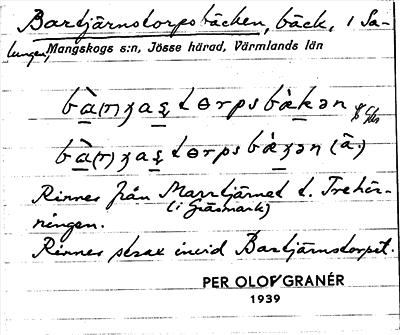 Bartjärnstorpsbäcken, bäck, i Sa-
lungen, Mangskogs s:n, Jösse härad, Värmlands län
bà(r)ʒas̨ tɵrpsbɛ̀kən
bà(r)ʒas̨ tɵrpsbɛ̀ʒən (ä.)
Rinner från Marrtjärnet t. Trehör-
(i Gräsmark)
ningen.
Rinner strax invid Bartjärnstorpet.
PER OLOF GRANÉR
1939